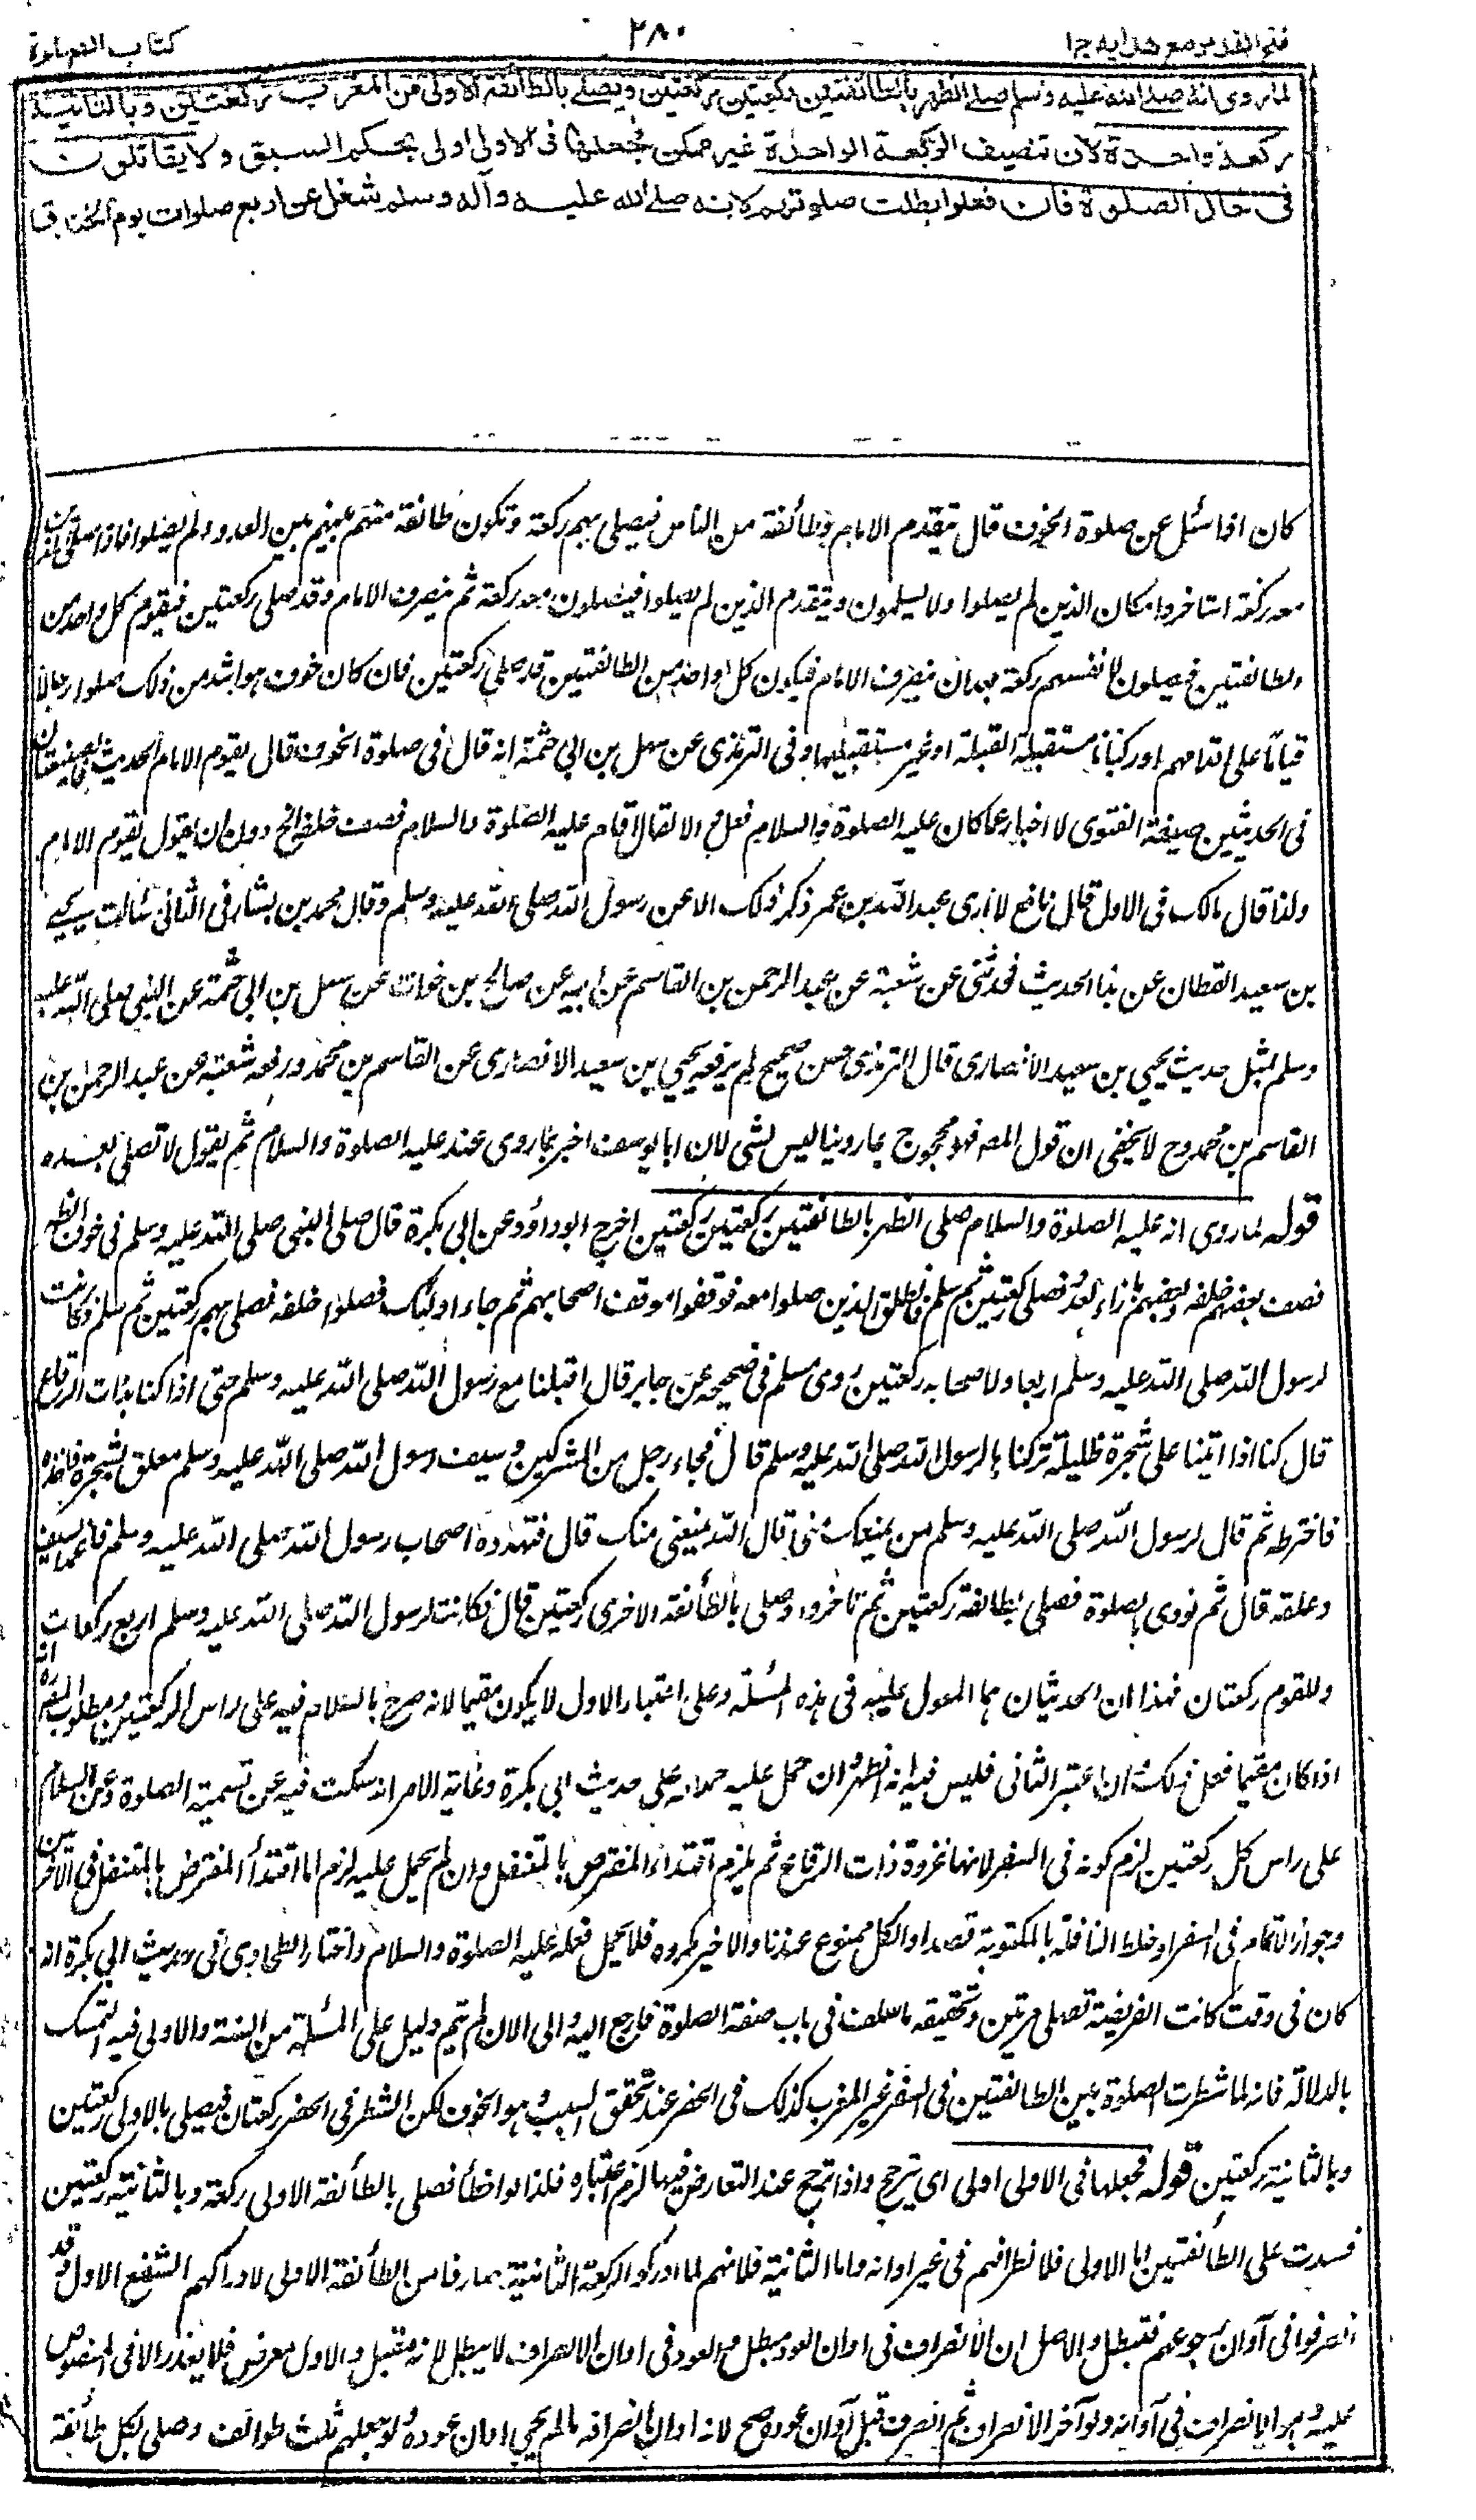 فتح القدير مع هدايه ج١
٢٨٠
كتاب الصلوة
لما روى انه صلى الله عليه وسلم صلى الظهر بالطائفتين ركعتين ركعتين ويصلي بالطائفة الاولى من المغرب ركعتين وبالثانية
ركعة واحدة لان تنصيف الركعة الواحدة غير ممكن فجعلها في الاولى اولى بحكم السبق ولا يقاتلون
في حال الصلوة فان فعلوا بطلت صلوتهم لانه صلى الله عليه وآله وسلم شغل عن اربع صلوات يوم الخندق
كان اذا سئل عن صلوة الخوف قال يتقدم الامام وطائفة من الناس فيصلي بهم ركعة وتكون طائفة منهم بينهم وبين العدو ولم يصلوا فاذا صلى الذين
معه ركعة استاخروا مكان الذين لم يصلوا ولا يسلمون ويتقدم الذين لم يصلوا فيصلون معه ركعة ثم ينصرف الامام وقد صلى ركعتين فيقوم كل واحد من
الطائفتين فيصلون لانفسهم ركعة بعد ان ينصرف الامام فيكون كل واحد من الطائفتين قد صلى ركعتين فان كان خوف هو اشد من ذلك صلوا رجالا
قياما على اقدامهم او ركبانا مستقبلي القبلة او غير مستقبليها وفي الترمذي عن سهل بن ابي حثمة انه قال في صلوة الخوف قال يقوم الامام الحديث
في الحديثين صيغة الفتوى لا اخبار عما كان عليه الصلوة والسلام فعل والا لقال قام عليه الصلوة والسلام فصف خلفه الخ دون ان يقول يقوم الامام
ولذا قال مالك في الاول قال نافع لا ارى عبد الله بن عمر ذكر ذلك الا عن رسول الله صلى الله عليه وسلم وقال محمد بن بشار في الثاني سألت يحيى
بن سعيد القطان عن هذا الحديث فحدثني عن شعبة عن عبد الرحمن بن القاسم عن ابيه عن صالح بن خوات عن سهل بن ابي حثمة عن النبي صلى الله عليه
وسلم بمثل حديث يحيى بن سعيد الانصاري قال الترمذي حسن صحيح لم يرفعه يحيى بن سعيد الانصاري عن القاسم بن محمد ورفعه شعبة عن عبد الرحمن بن
القاسم بن محمد وح لا يخفى ان قول المصـ فهو محجوج بما روينا ليس بشي لان ابا يوسف اخبر بما روى عنه عليه الصلوة والسلام ثم يقول لا تصلى بعده
قوله لما روى انه عليه الصلوة والسلام صلى الظهر بالطائفتين ركعتين ركعتين اخرج ابو داؤد عن ابي بكرة قال صلى النبي صلى الله عليه وسلم في خوف الظهر
فصف بعضهم خلفه وبعضهم بازاء العدو فصلى ركعتين ثم سلم فانطلق الذين صلوا معه فوقفوا موقف اصحابهم ثم جاء اولئك فصلوا خلفه فصلى بهم ركعتين ثم سلم فكانت
لرسول الله صلى الله عليه وسلم اربعا ولاصحابه ركعتين روى مسلم في صحيحه عن جابر قال اقبلنا مع رسول الله صلى الله عليه وسلم حتى اذا كنا بذات الرقاع
قال كنا اذا اتينا على شجرة ظليلة تركناها لرسول الله صلى الله عليه وسلم قال فجاء رجل من المشركين وسيف رسول الله صلى الله عليه وسلم معلق بشجرة فاخذه
فاخترطه ثم قال لرسول الله صلى الله عليه وسلم من يمنعك مني قال الله يمنعني منك قال فتهدده اصحاب رسول الله صلى الله عليه وسلم فاغمد السيف
وعلقه قال ثم نودى بالصلوة فصلى بطائفة ركعتين ثم تاخروا وصلى بالطائفة الاخرى ركعتين قال فكانت لرسول الله صلى الله عليه وسلم اربع ركعات
وللقوم ركعتان فهذان الحديثان هما المعول عليه في هذه المسئلة وعلى اعتبار الاول لا يكون مقيما لانه صرح بالسلام فيه على راس الركعتين ومطلوب المصـ انه
اذا كان مقيما فعل ذلك وان اعتبر الثاني فليس فيه انه الظهر وان حمل عليه حملا له على حديث ابي بكرة وغاية الامر انه سكت فيه عن تسمية الصلوة وعن السلام
على راس كل ركعتين لزم كونه في السفر لانها غزوة ذات الرقاع ثم يلزم اقتداء المفترض بالمتنفل وان لم يحمل عليه لزم اما اقتداء المفترض بالمتنفل في الآخرين
وجواز الاتمام في السفر او خلط النافلة بالمكتوبة قصدا والكل ممنوع عندنا والاخير مكروه فلا يحمل فعله عليه الصلوة والسلام واختار الطحاوي في حديث ابي بكرة انه
كان في وقت كانت الفريضة تصلى مرتين وتحقيقه ما سلف في باب صفة الصلوة فارجع اليه والى الان لم يتم دليل على المسئلة من السنة والاولى فيه التمسك
بالدلالة فانه لما شطرت الصلوة بين الطائفتين في السفر غير المغرب كذلك في الحضر عند تحقق السبب وهو الخوف لكن الشطر في الحضر ركعتان فيصلي بالاولى ركعتين
وبالثانية ركعتين قوله فجعلها في الاولى اولى اى يترجح واذا ترجح عند التعارض فيها لزم اعتباره فلذا لو اخطأ فصلى بالطائفة الاولى ركعة وبالثانية ركعتين
فسدت على الطائفتين اما الاولى فلانصرافهم في غير اوانه واما الثانية فلانهم لما ادركوا الركعة الثانية صاروا من الطائفة الاولى لادراكهم الشفع الاول وقد
انصرفوا في آوان رجوعهم فتبطل والاصل ان الانصراف في اوان العود مبطل والعود في اوان الانصراف لا يبطل لانه مقبل والاول معرض فلا يعذر الا في المنصوص
عليه وهو الانصراف في آوانه ولو آخر الانصراف ثم انصرف قبل آوان عوده صح لانه اوان انصرافه ما لم يجئ اوان عوده ولو جعلهم ثلث طوائف وصلى بكل طائفة